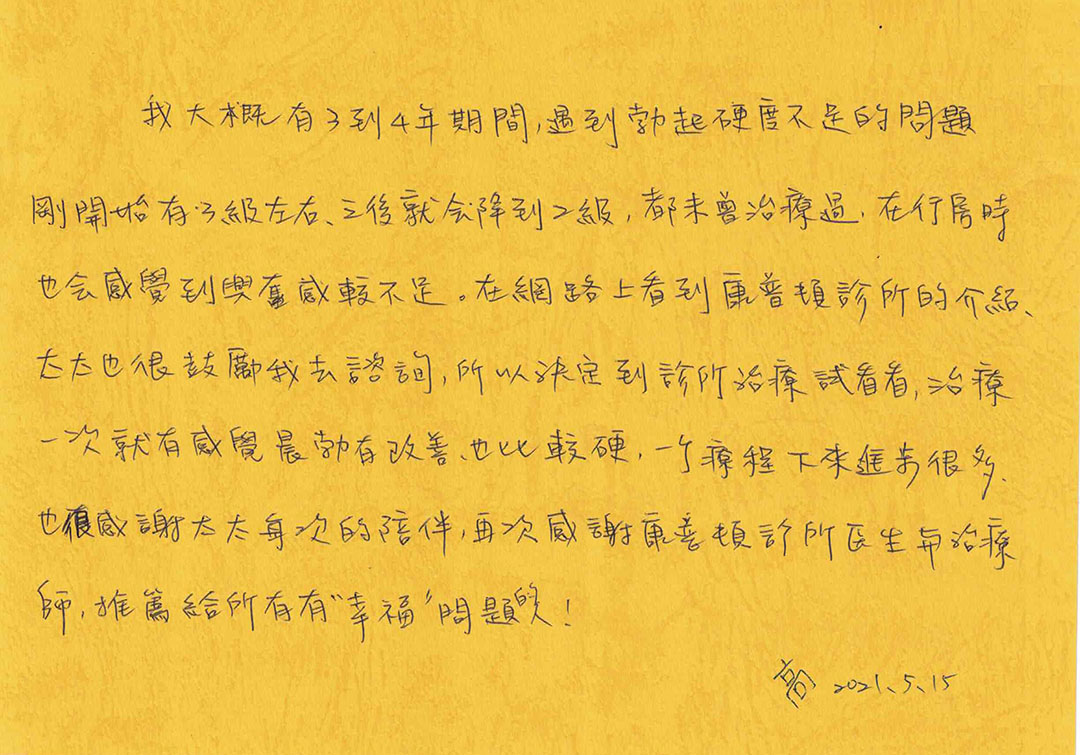 我大概有3到4年期間,遇到勃起硬度不足的問題
剛開始有3級左右、之後就会降到2級,都未曾治療過,在行房時
也会感覺到興奮感較不足。在網路上看到康普頓診所的介紹、
太太也很鼓勵我去諮詢,所以決定到診所治療試看看,治療
一次就有感覺晨勃有改善、也比較硬,一个療程下來進步很多、
也很感謝太太每次的陪伴,再次感謝康普頓診所医生与治療
師,推薦給所有有"幸福"問題的人!
高 2021、5、15